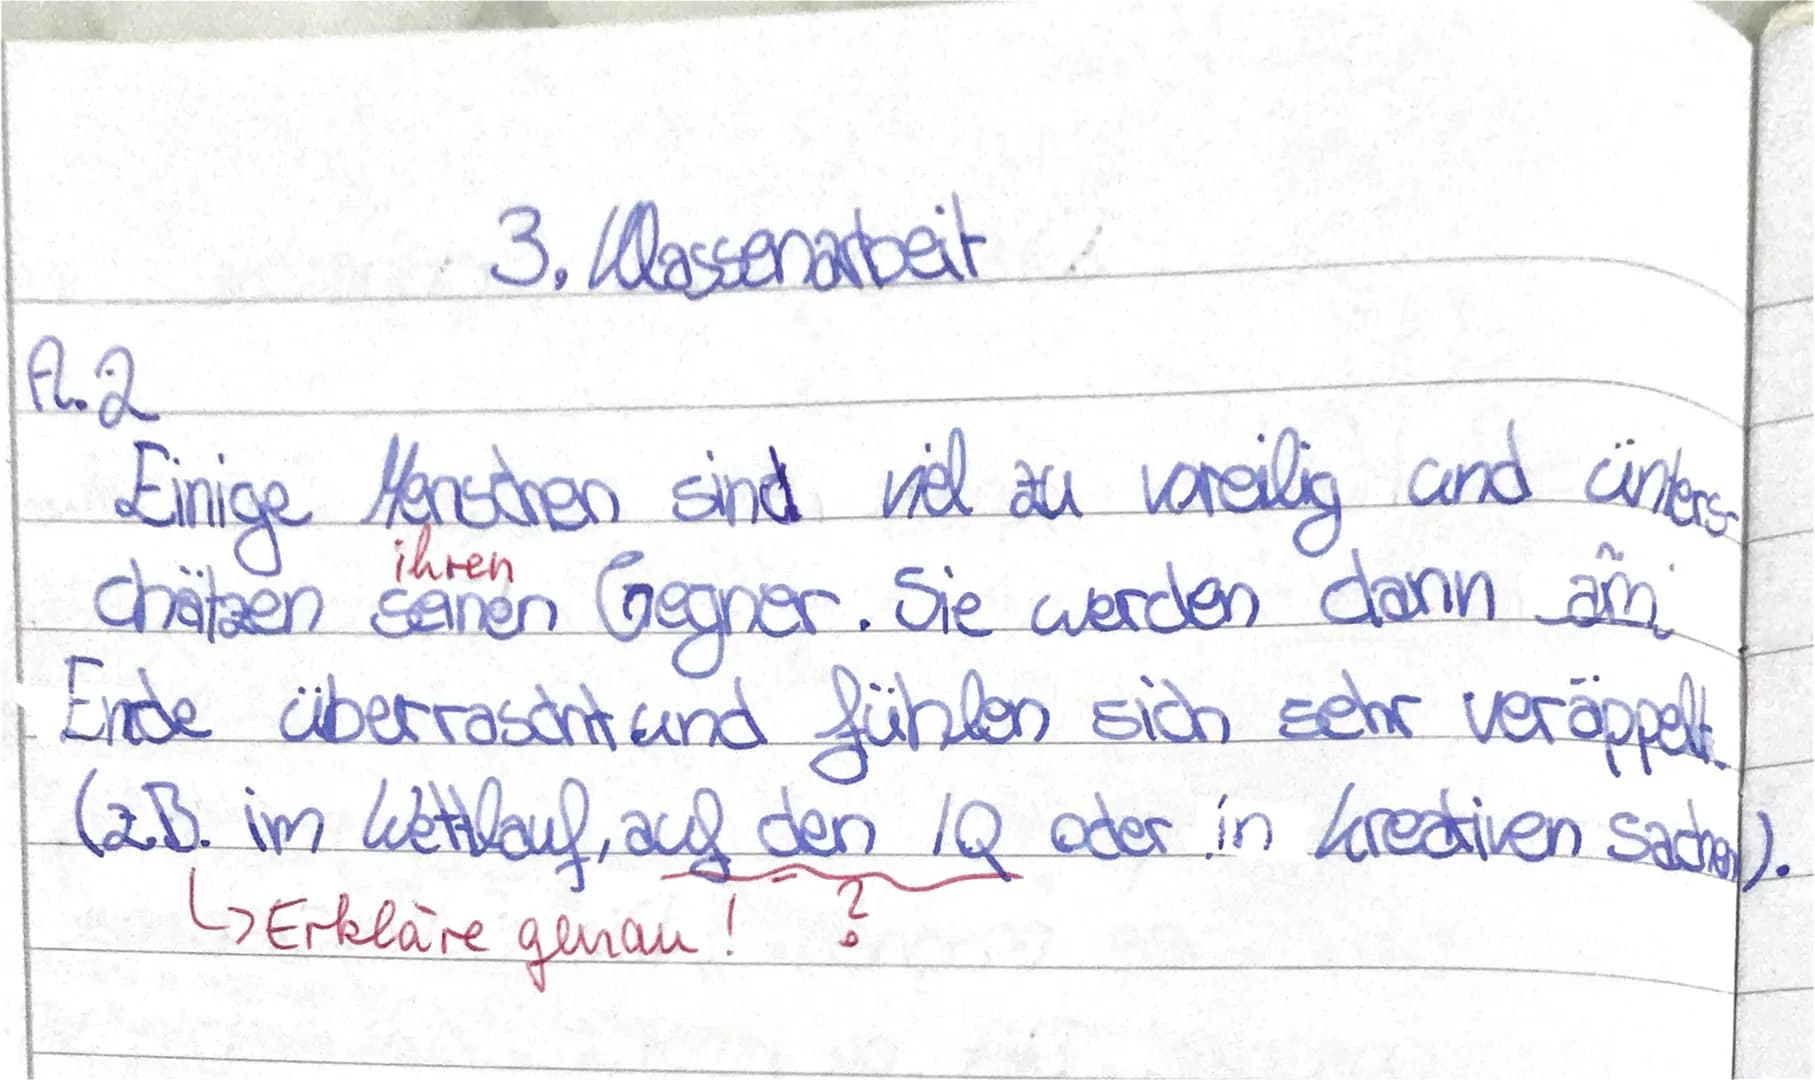 3. Klassenarbeit
A.2
Einige Menschen sind viel zu voreilig und unters-
ihren
chätzen seinen Gegner. Sie werden dann am
Ende überrascht und fühlen sich sehr veräppelt.
(z.B. im Wettlauf, auf den IQ oder in kreativen sachen).
↳ Erkläre genau! ?